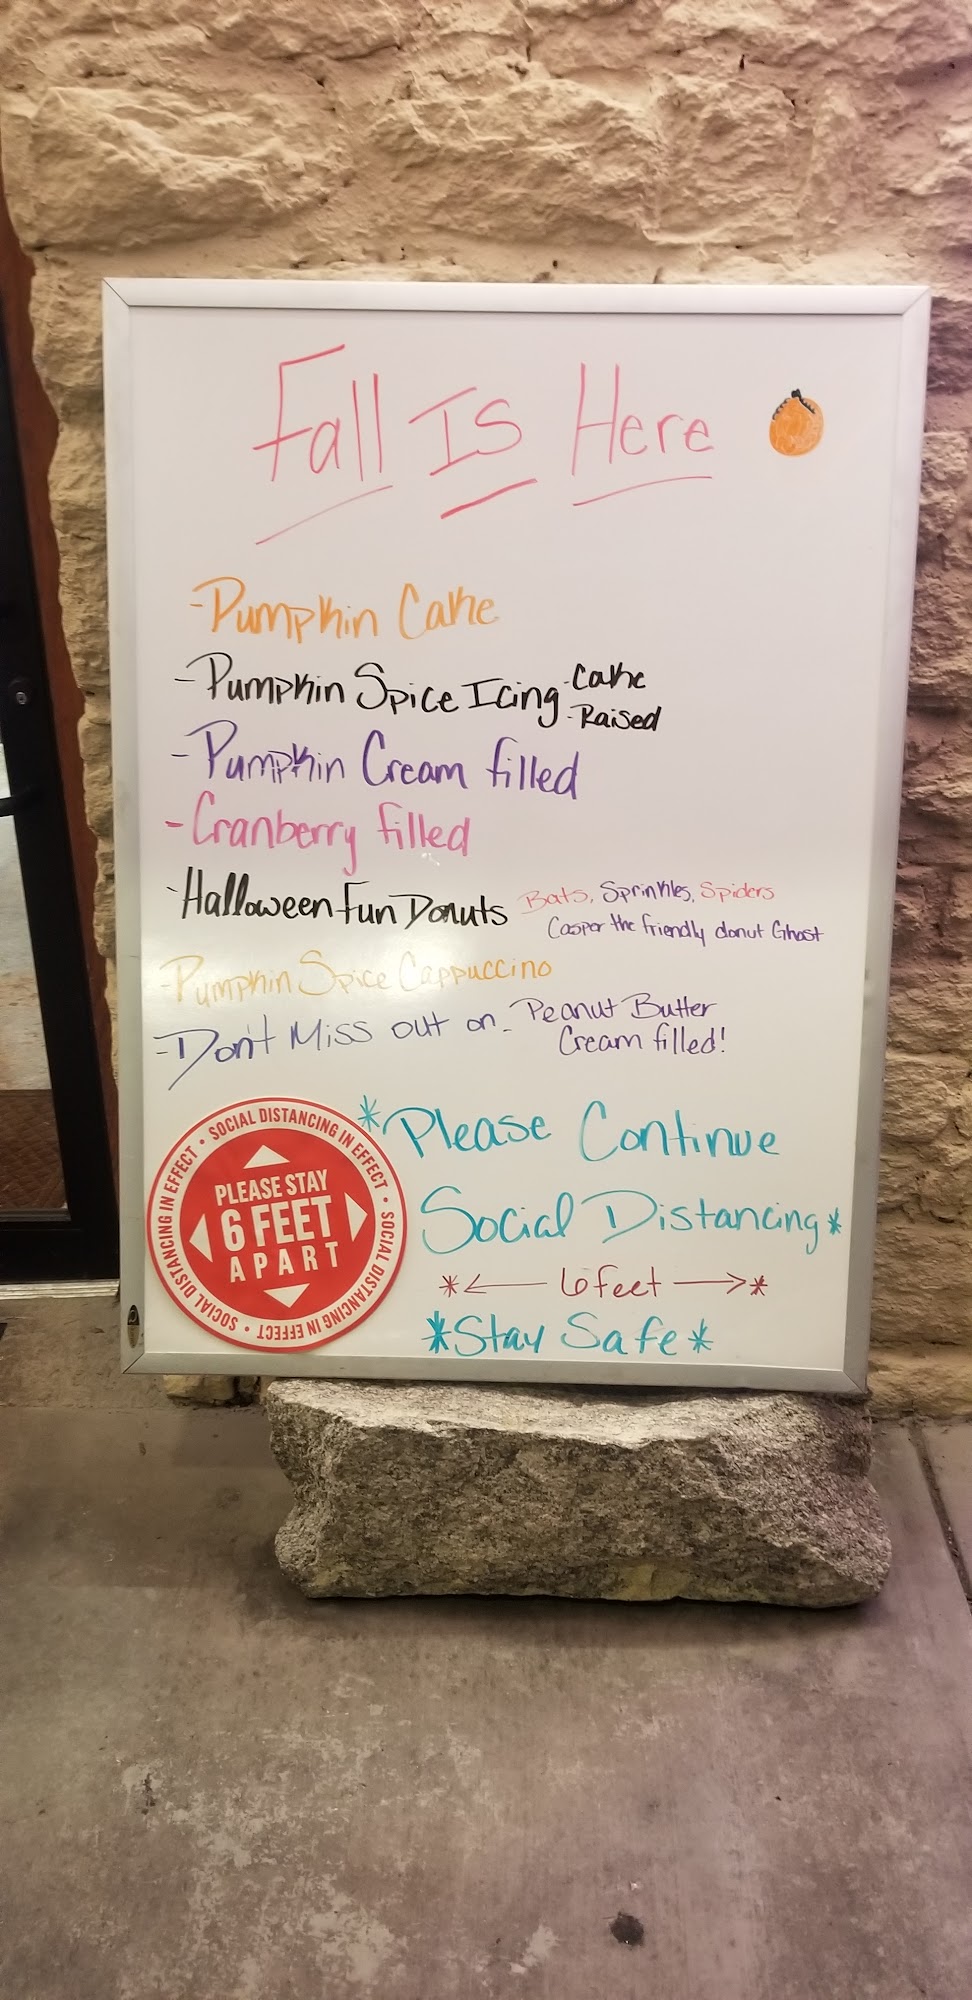 Fall Is Here
-Pumpkin Cake
-Pumpkin Spice Icing -Cake
-Raised
-Pumpkin Cream filled
-Cranberry filled
-Halloween Fun Donuts Bats, Sprinkles, Spiders
Casper the friendly donut Ghost
-Pumpkin Spice Cappuccino
-Don't Miss out on - Peanut Butter
Cream filled!
*Please Continue
Social Distancing*
*← 6 feet →*
*Stay Safe*
SOCIAL DISTANCING IN EFFECT • SOCIAL DISTANCING IN EFFECT • SOCIAL DISTANCING IN EFFECT •
PLEASE STAY
6 FEET
APART